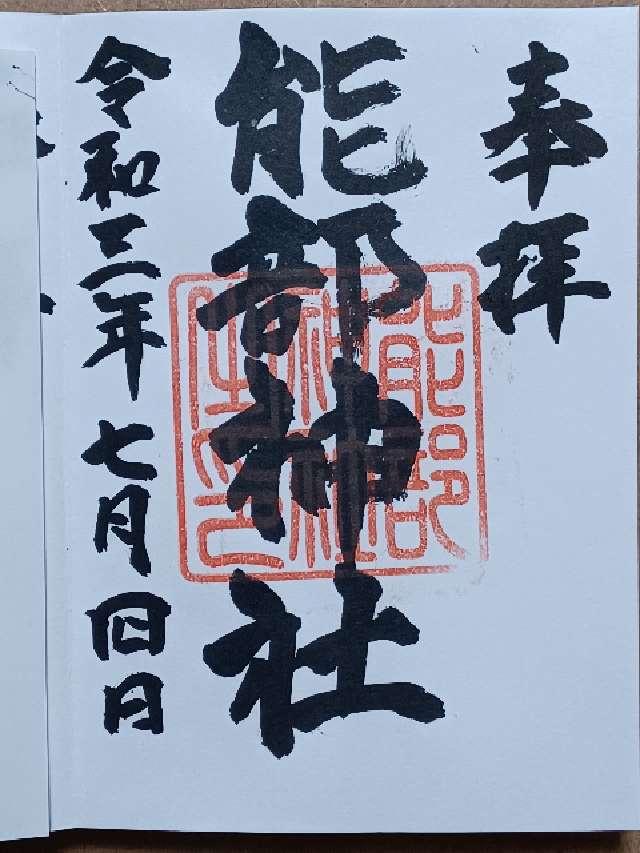 奉拝
能部神社
令和三年七月四日
能部
神社
之印